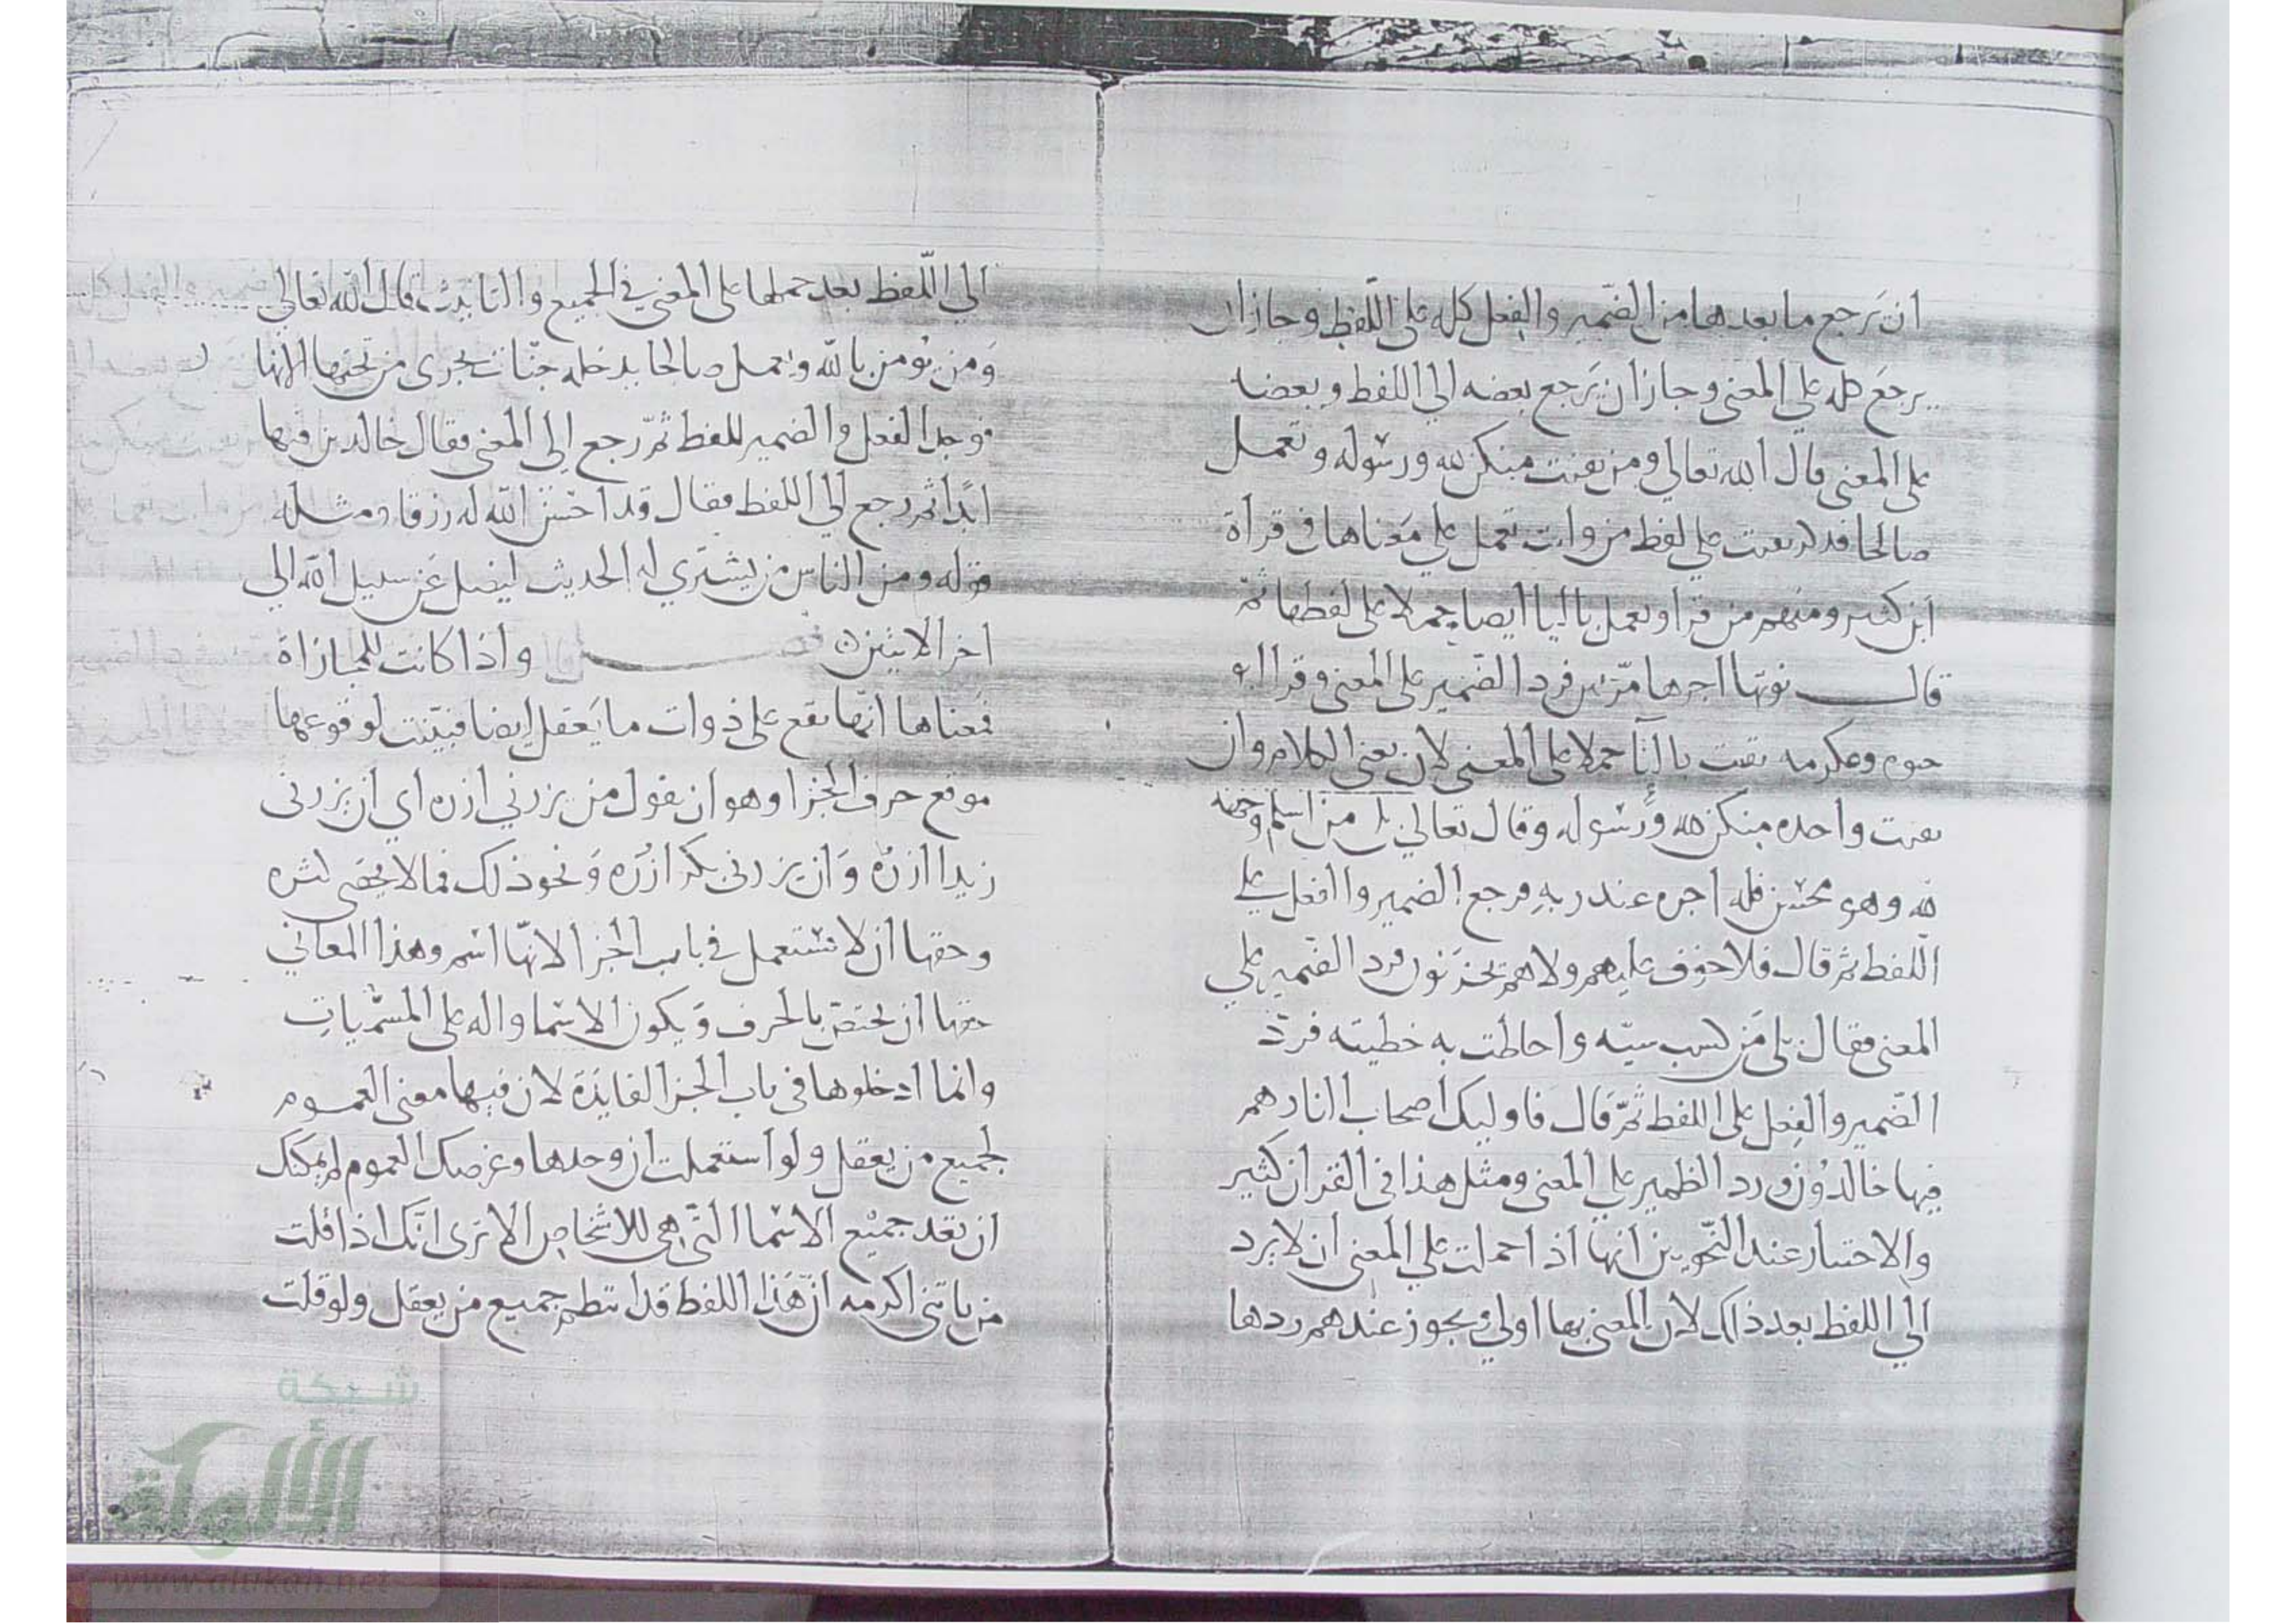 ان يَرجع ما بعدها من الضّمير والفِعل كله على اللّفظ وجاز ان
يرجعَ كله علي المعني وجاز ان يَرجع بعضه الي اللفظ وبعضه
على المعنى قال الله تعالي ومن يقنت منكن لله ورسوله وتعمل
صالحا فذكر يقنت على لفظ من وانت تعمل علي مَعناها في قراة
ابن كثير ومنهم من قرا ويعمل باليا ايضا حملا على لفظها ثمّ
قال نوتها اجرها مرّتين فرد الضّمير على المعنى وقرا
وعكرمه تقنت بالتّا حملا على المعنى لان معنى الكلام وان
تقنت واحده منكن لله ورَسُوله وقال تعالى بلى من اسلم وجهه
لله وهو محسن فله اجره عند ربهِ فرجع الضمير والفعل على
اللّفظ ثم قال فلا خوف عليهم ولا هم يحزَنون فرد الضّمير علي
المعنى فقال بلى مَن كسب سيّه واحاطت به خطيته فردّ
الضّمير والفِعل على اللفظ ثمّ قال فاوليك اصحاب النار هم
فيها خالدُون ورد الظمير علي المعنى ومثل هذا في القران كثير
والاختيار عند النّحويين انها اذا حملت علي المعنى ان لا يرد
الي اللفظ بعد ذلك لان المعنى بها اولى ويجوز عندهم ردها
الي اللّفظ بعد حملها على المعنى في الجميع والتانيث قال الله تعالي
وَمن يُومن بالله ويعمل صالحا يدخله جنّات تجرى من تحتها الانها ر
فوحد الفعل والضمير للفظ ثمّ رجع اِلى المعنى فقال خالدين فيها
ابدًا ثم رجع الي اللفظ فقال قد احْسَن الله له رزقا ومثله
قوله ومن الناس من يشتري لهو الحديث ليضل عَن سبيل الله الي
اخر الايتين واذا كانت للمجازاة
فمعناها انّها تقع على ذوات ما يَعقل ايضا فبيّنت لوقوعها
موقع حرف الجزا وهو ان تقول من يزرني ازره اي ان يزرنى
زيدا ازرْه وَان يزرنى بكر ازُره وَنحو ذلك فما لا يحصى كثره
وحقها ان لا تستعمل في باب الجزا لانّها اسْم وهذا المعاني
حقها ان تختصّ بالحرف وَيكون الاسْما داله على المسَمّياتِ
وانما ادخلوها في باب الجزا لفايَدَة لان فيها معنى العموم
لجميع من يعقل ولو استعملت ان وحدها وغرضك العموم لم يمكنك
ان تعد جميْع الاسْما التّي هي للاشخاص الا ترى انّك اذا قلت
من ياتنى اكرمه انّ هَذا اللفظ قد انتظم جميع من يعقل ولو قلت
شبكة
الألوكة
www.alukah.net